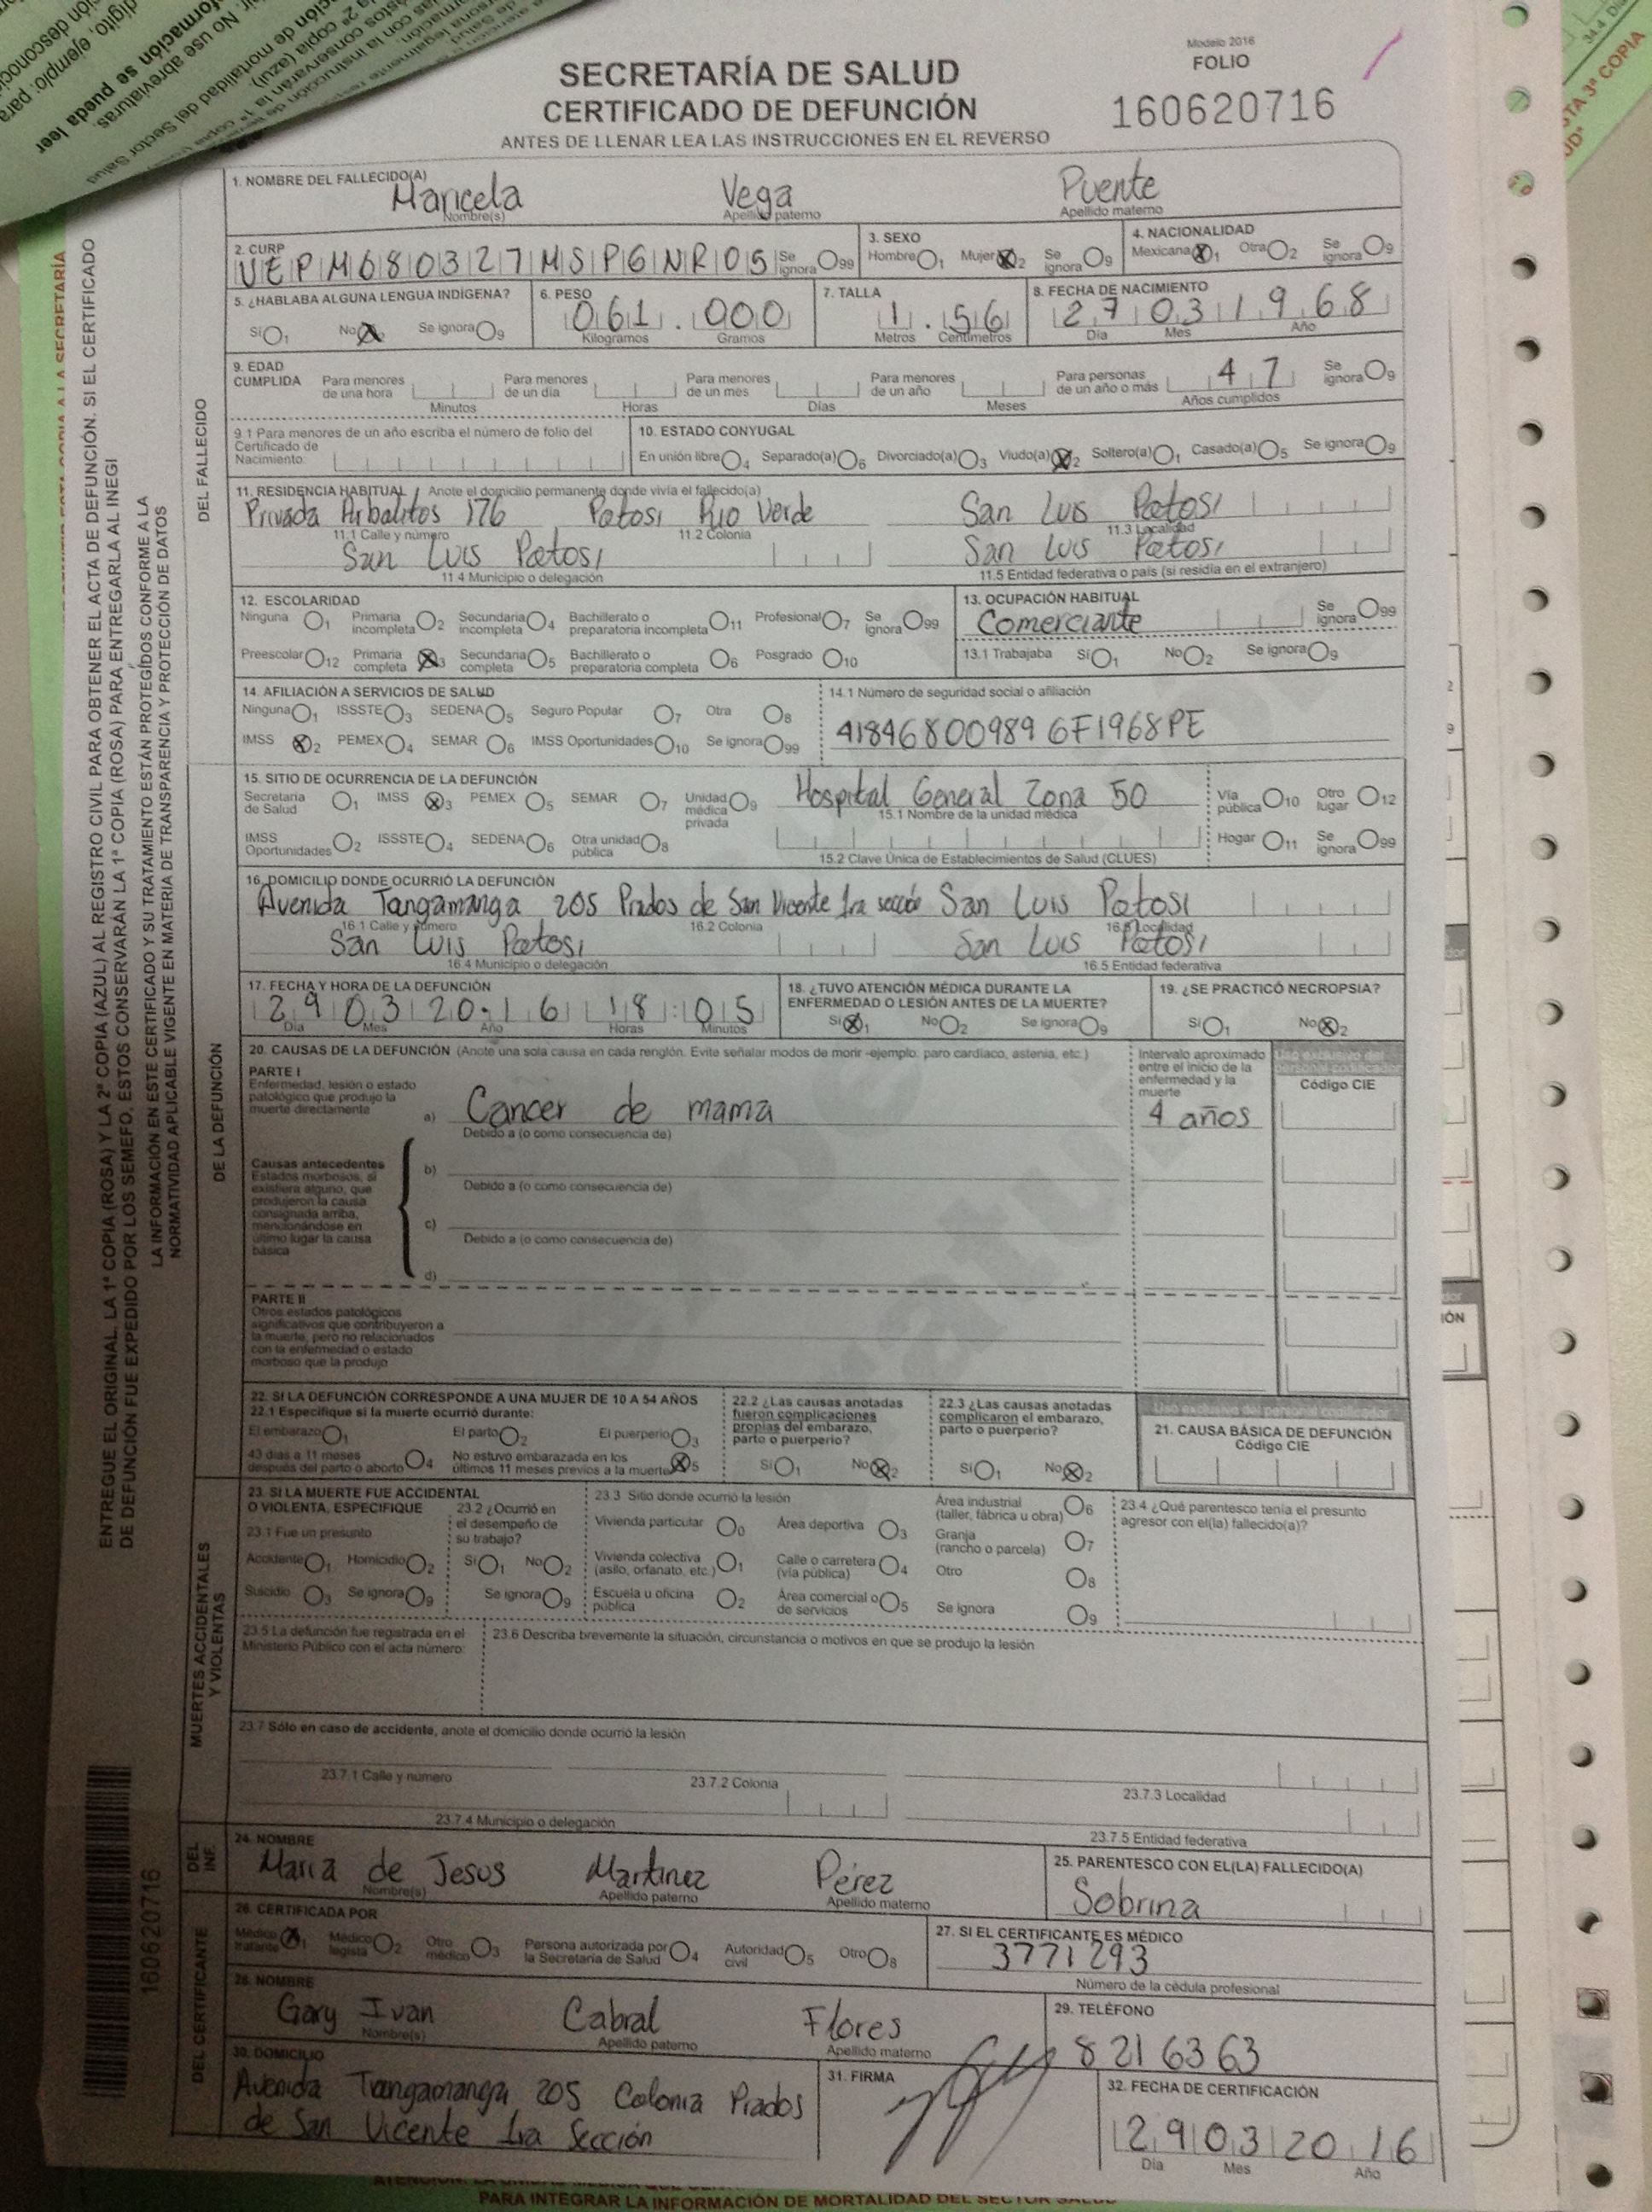 Modelo 2016
FOLIO
160620716
SECRETARÍA DE SALUD
CERTIFICADO DE DEFUNCIÓN
ANTES DE LLENAR LEA LAS INSTRUCCIONES EN EL REVERSO
1. NOMBRE DEL FALLECIDO(A)
Maricela Vega Puente
Nombre(s) Apellido paterno Apellido materno
2. CURP VEPM680327MSPGNR05 Se ignora 99
3. SEXO Hombre 1 Mujer X 2 Se ignora 9
4. NACIONALIDAD Mexicana X 1 Otra 2 Se ignora 9
5. ¿HABLABA ALGUNA LENGUA INDÍGENA? Sí 1 No X 2 Se ignora 9
6. PESO 061.000 Kilogramos Gramos
7. TALLA 1.56 Metros Centímetros
8. FECHA DE NACIMIENTO 27 03 1968 Día Mes Año
9. EDAD CUMPLIDA Para menores de una hora Minutos Para menores de un día Horas Para menores de un mes Días Para menores de un año Meses Para personas de un año o más 47 Años cumplidos Se ignora 9
9.1 Para menores de un año escriba el número de folio del Certificado de Nacimiento:
10. ESTADO CONYUGAL
En unión libre 4 Separado(a) 6 Divorciado(a) 3 Viudo(a) X 2 Soltero(a) 1 Casado(a) 5 Se ignora 9
11. RESIDENCIA HABITUAL / Anote el domicilio permanente donde vivía el fallecido(a)
Privada Arbolitos 176 Potosi Rio Verde San Luis Potosi
11.1 Calle y número 11.2 Colonia 11.3 Localidad
San Luis Potosi San Luis Potosi
11.4 Municipio o delegación 11.5 Entidad federativa o país (si residía en el extranjero)
12. ESCOLARIDAD
Ninguna 1 Primaria incompleta 2 Secundaria incompleta 4 Bachillerato o preparatoria incompleta 11 Profesional 7 Se ignora 99
Preescolar 12 Primaria completa X 3 Secundaria completa 5 Bachillerato o preparatoria completa 6 Posgrado 10
13. OCUPACIÓN HABITUAL
Comerciante Se ignora 99
13.1 Trabajaba Sí 1 No 2 Se ignora 9
14. AFILIACIÓN A SERVICIOS DE SALUD
Ninguna 1 ISSSTE 3 SEDENA 5 Seguro Popular 7 Otra 8
IMSS X 2 PEMEX 4 SEMAR 6 IMSS Oportunidades 10 Se ignora 99
14.1 Número de seguridad social o afiliación
4184680098 96F1968PE
15. SITIO DE OCURRENCIA DE LA DEFUNCIÓN
Secretaría de Salud 1 IMSS X 3 PEMEX 5 SEMAR 7 Unidad médica privada 9
IMSS Oportunidades 2 ISSSTE 4 SEDENA 6 Otra unidad pública 8
Hospital General Zona 50
15.1 Nombre de la unidad médica
15.2 Clave Única de Establecimientos de Salud (CLUES)
Vía pública 10 Otro lugar 12
Hogar 11 Se ignora 99
16. DOMICILIO DONDE OCURRIÓ LA DEFUNCIÓN
Avenida Tangamanga 205 Prados de San Vicente 1ra sección San Luis Potosi
16.1 Calle y número 16.2 Colonia 16.3 Localidad
San Luis Potosi San Luis Potosi
16.4 Municipio o delegación 16.5 Entidad federativa
17. FECHA Y HORA DE LA DEFUNCIÓN
29 03 2016 18:05
Día Mes Año Horas Minutos
18. ¿TUVO ATENCIÓN MÉDICA DURANTE LA ENFERMEDAD O LESIÓN ANTES DE LA MUERTE?
Sí X 1 No 2 Se ignora 9
19. ¿SE PRACTICÓ NECROPSIA?
Sí 1 No X 2
20. CAUSAS DE LA DEFUNCIÓN (Anote una sola causa en cada renglón. Evite señalar modos de morir -ejemplo: paro cardíaco, astenia, etc.)
PARTE I
Enfermedad, lesión o estado patológico que produjo la muerte directamente
a) Cancer de mama
Debido a (o como consecuencia de)
Intervalo aproximado entre el inicio de la enfermedad y la muerte
4 años
Uso exclusivo del personal codificador
Código CIE
Causas antecedentes
Estados morbosos, si existiera alguno, que produjeron la causa consignada arriba, mencionándose en último lugar la causa básica
b)
Debido a (o como consecuencia de)
c)
Debido a (o como consecuencia de)
d)
PARTE II
Otros estados patológicos significativos que contribuyeron a la muerte, pero no relacionados con la enfermedad o estado morboso que la produjo
22. SI LA DEFUNCIÓN CORRESPONDE A UNA MUJER DE 10 A 54 AÑOS
22.1 Especifique si la muerte ocurrió durante:
El embarazo 1 El parto 2 El puerperio 3
43 días a 11 meses después del parto o aborto 4 No estuvo embarazada en los últimos 11 meses previos a la muerte X 5
22.2 ¿Las causas anotadas fueron complicaciones propias del embarazo, parto o puerperio?
Sí 1 No X 2
22.3 ¿Las causas anotadas complicaron el embarazo, parto o puerperio?
Sí 1 No X 2
Uso exclusivo del personal codificador
21. CAUSA BÁSICA DE DEFUNCIÓN
Código CIE
23. SI LA MUERTE FUE ACCIDENTAL O VIOLENTA, ESPECIFIQUE
23.1 Fue un presunto
Accidente 1 Homicidio 2
Suicidio 3 Se ignora 9
23.2 ¿Ocurrió en el desempeño de su trabajo?
Sí 1 No 2
Se ignora 9
23.3 Sitio donde ocurrió la lesión
Vivienda particular 0 Área deportiva 3 Área industrial (taller, fábrica u obra) 6
Vivienda colectiva (asilo, orfanato, etc.) 1 Calle o carretera (vía pública) 4 Granja (rancho o parcela) 7
Escuela u oficina pública 2 Área comercial o de servicios 5 Otro 8
Se ignora 9
23.4 ¿Qué parentesco tenía el presunto agresor con el(la) fallecido(a)?
23.5 La defunción fue registrada en el Ministerio Público con el acta número:
23.6 Describa brevemente la situación, circunstancia o motivos en que se produjo la lesión
23.7 Sólo en caso de accidente, anote el domicilio donde ocurrió la lesión
23.7.1 Calle y número 23.7.2 Colonia 23.7.3 Localidad
23.7.4 Municipio o delegación 23.7.5 Entidad federativa
24. NOMBRE
Maria de Jesus Martinez Pérez
Nombre(s) Apellido paterno Apellido materno
25. PARENTESCO CON EL(LA) FALLECIDO(A)
Sobrina
26. CERTIFICADA POR
Médico tratante X 1 Médico legista 2 Otro médico 3 Persona autorizada por la Secretaría de Salud 4 Autoridad civil 5 Otro 8
27. SI EL CERTIFICANTE ES MÉDICO
3771293
Número de la cédula profesional
28. NOMBRE
Gary Ivan Cabral Flores
Nombre(s) Apellido paterno Apellido materno
29. TELÉFONO
8216363
30. DOMICILIO
Avenida Tangamanga 205 Colonia Prados
de San Vicente 1ra Sección
31. FIRMA
32. FECHA DE CERTIFICACIÓN
29 03 2016
Día Mes Año
DEL FALLECIDO
DE LA DEFUNCIÓN
MUERTES ACCIDENTALES Y VIOLENTAS
DEL INF.
DEL CERTIFICANTE
ENTREGUE EL ORIGINAL, LA 1ª COPIA (ROSA) Y LA 2ª COPIA (AZUL) AL REGISTRO CIVIL PARA OBTENER EL ACTA DE DEFUNCIÓN. SI EL CERTIFICADO
DE DEFUNCIÓN FUE EXPEDIDO POR LOS SEMEFO, ESTOS CONSERVARÁN LA 1ª COPIA (ROSA) PARA ENTREGARLA AL INEGI
LA INFORMACIÓN EN ESTE CERTIFICADO Y SU TRATAMIENTO ESTÁN PROTEGIDOS CONFORME A LA
NORMATIVIDAD APLICABLE VIGENTE EN MATERIA DE TRANSPARENCIA Y PROTECCIÓN DE DATOS
160620716
PARA INTEGRAR LA INFORMACIÓN DE MORTALIDAD DEL SECTOR SALUD